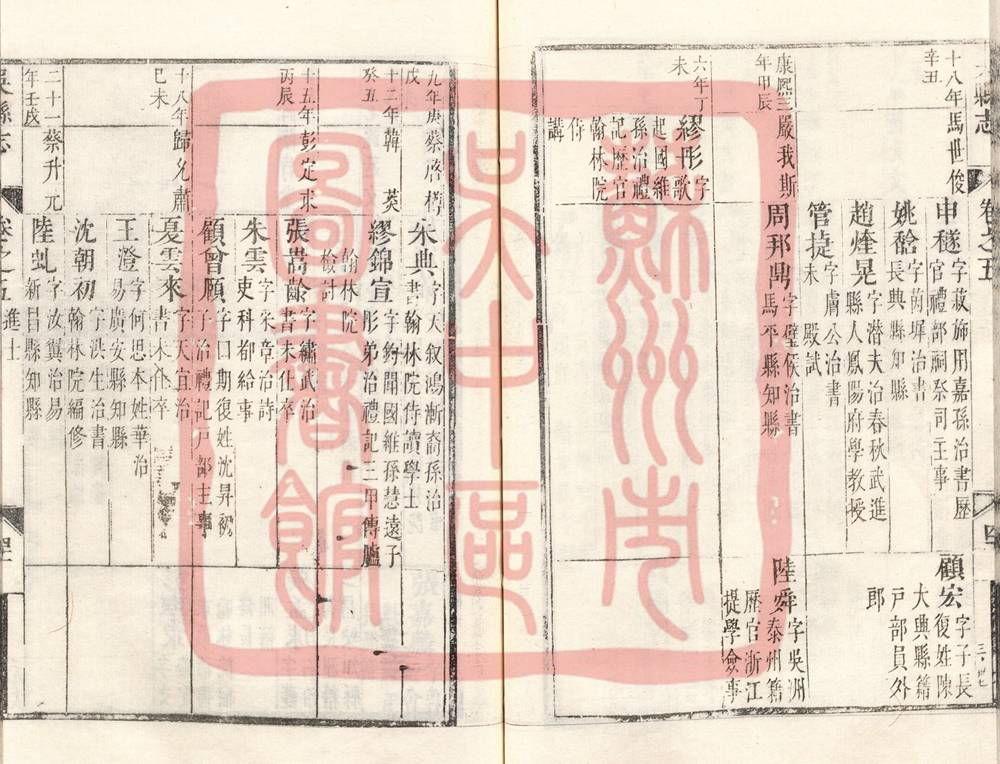 縣志
卷之五
四
十八年
辛丑
馬世俊
申穟字菽斾用嘉孫治書歷
官禮部祠祭司主事
顧宏字子長
復姓陳
大興縣籍
戶部員外
郎
姚䶉字茵墀治書
長興縣知縣
趙煃晃字潛夫治春秋武進
縣人鳳陽府學教授
管捷字膚公治書
未殿試
康熙三
年甲辰
嚴我斯
周邦鼎字璧侯治書
馬平縣知縣
陸舜字吳洲
泰州籍
歷官浙江
提學僉事
六年丁
未
繆彤字
歌
起國維
孫治禮
記歷官
翰林院
侍
講
九年庚
戌
蔡啓僔
宋典字天敘鴻漸裔孫治
書翰林院侍讀學士
十二年
癸丑
韓菼
繆錦宣字鈞聞國維孫慧遠子
彤弟治禮記三甲傳臚
翰林院
檢討
十五年
丙辰
彭定求
張嵩齡字繡武治
書未仕卒
朱雲字采章治詩
吏科都給事
顧曾願字口期復姓沈昇初
子治禮記戶部主事
十八年
己未
歸允肅
夏雲來字天宜治
書未仕卒
王澄字何思本姓華治
易廣安縣知縣
沈朝初字洪生治書
翰林院編修
二十一
年壬戌
蔡升元
陸虬字汝翼治易
新昌縣知縣
吳縣志
卷之五進士
蘇州市
吳中區
圖書館